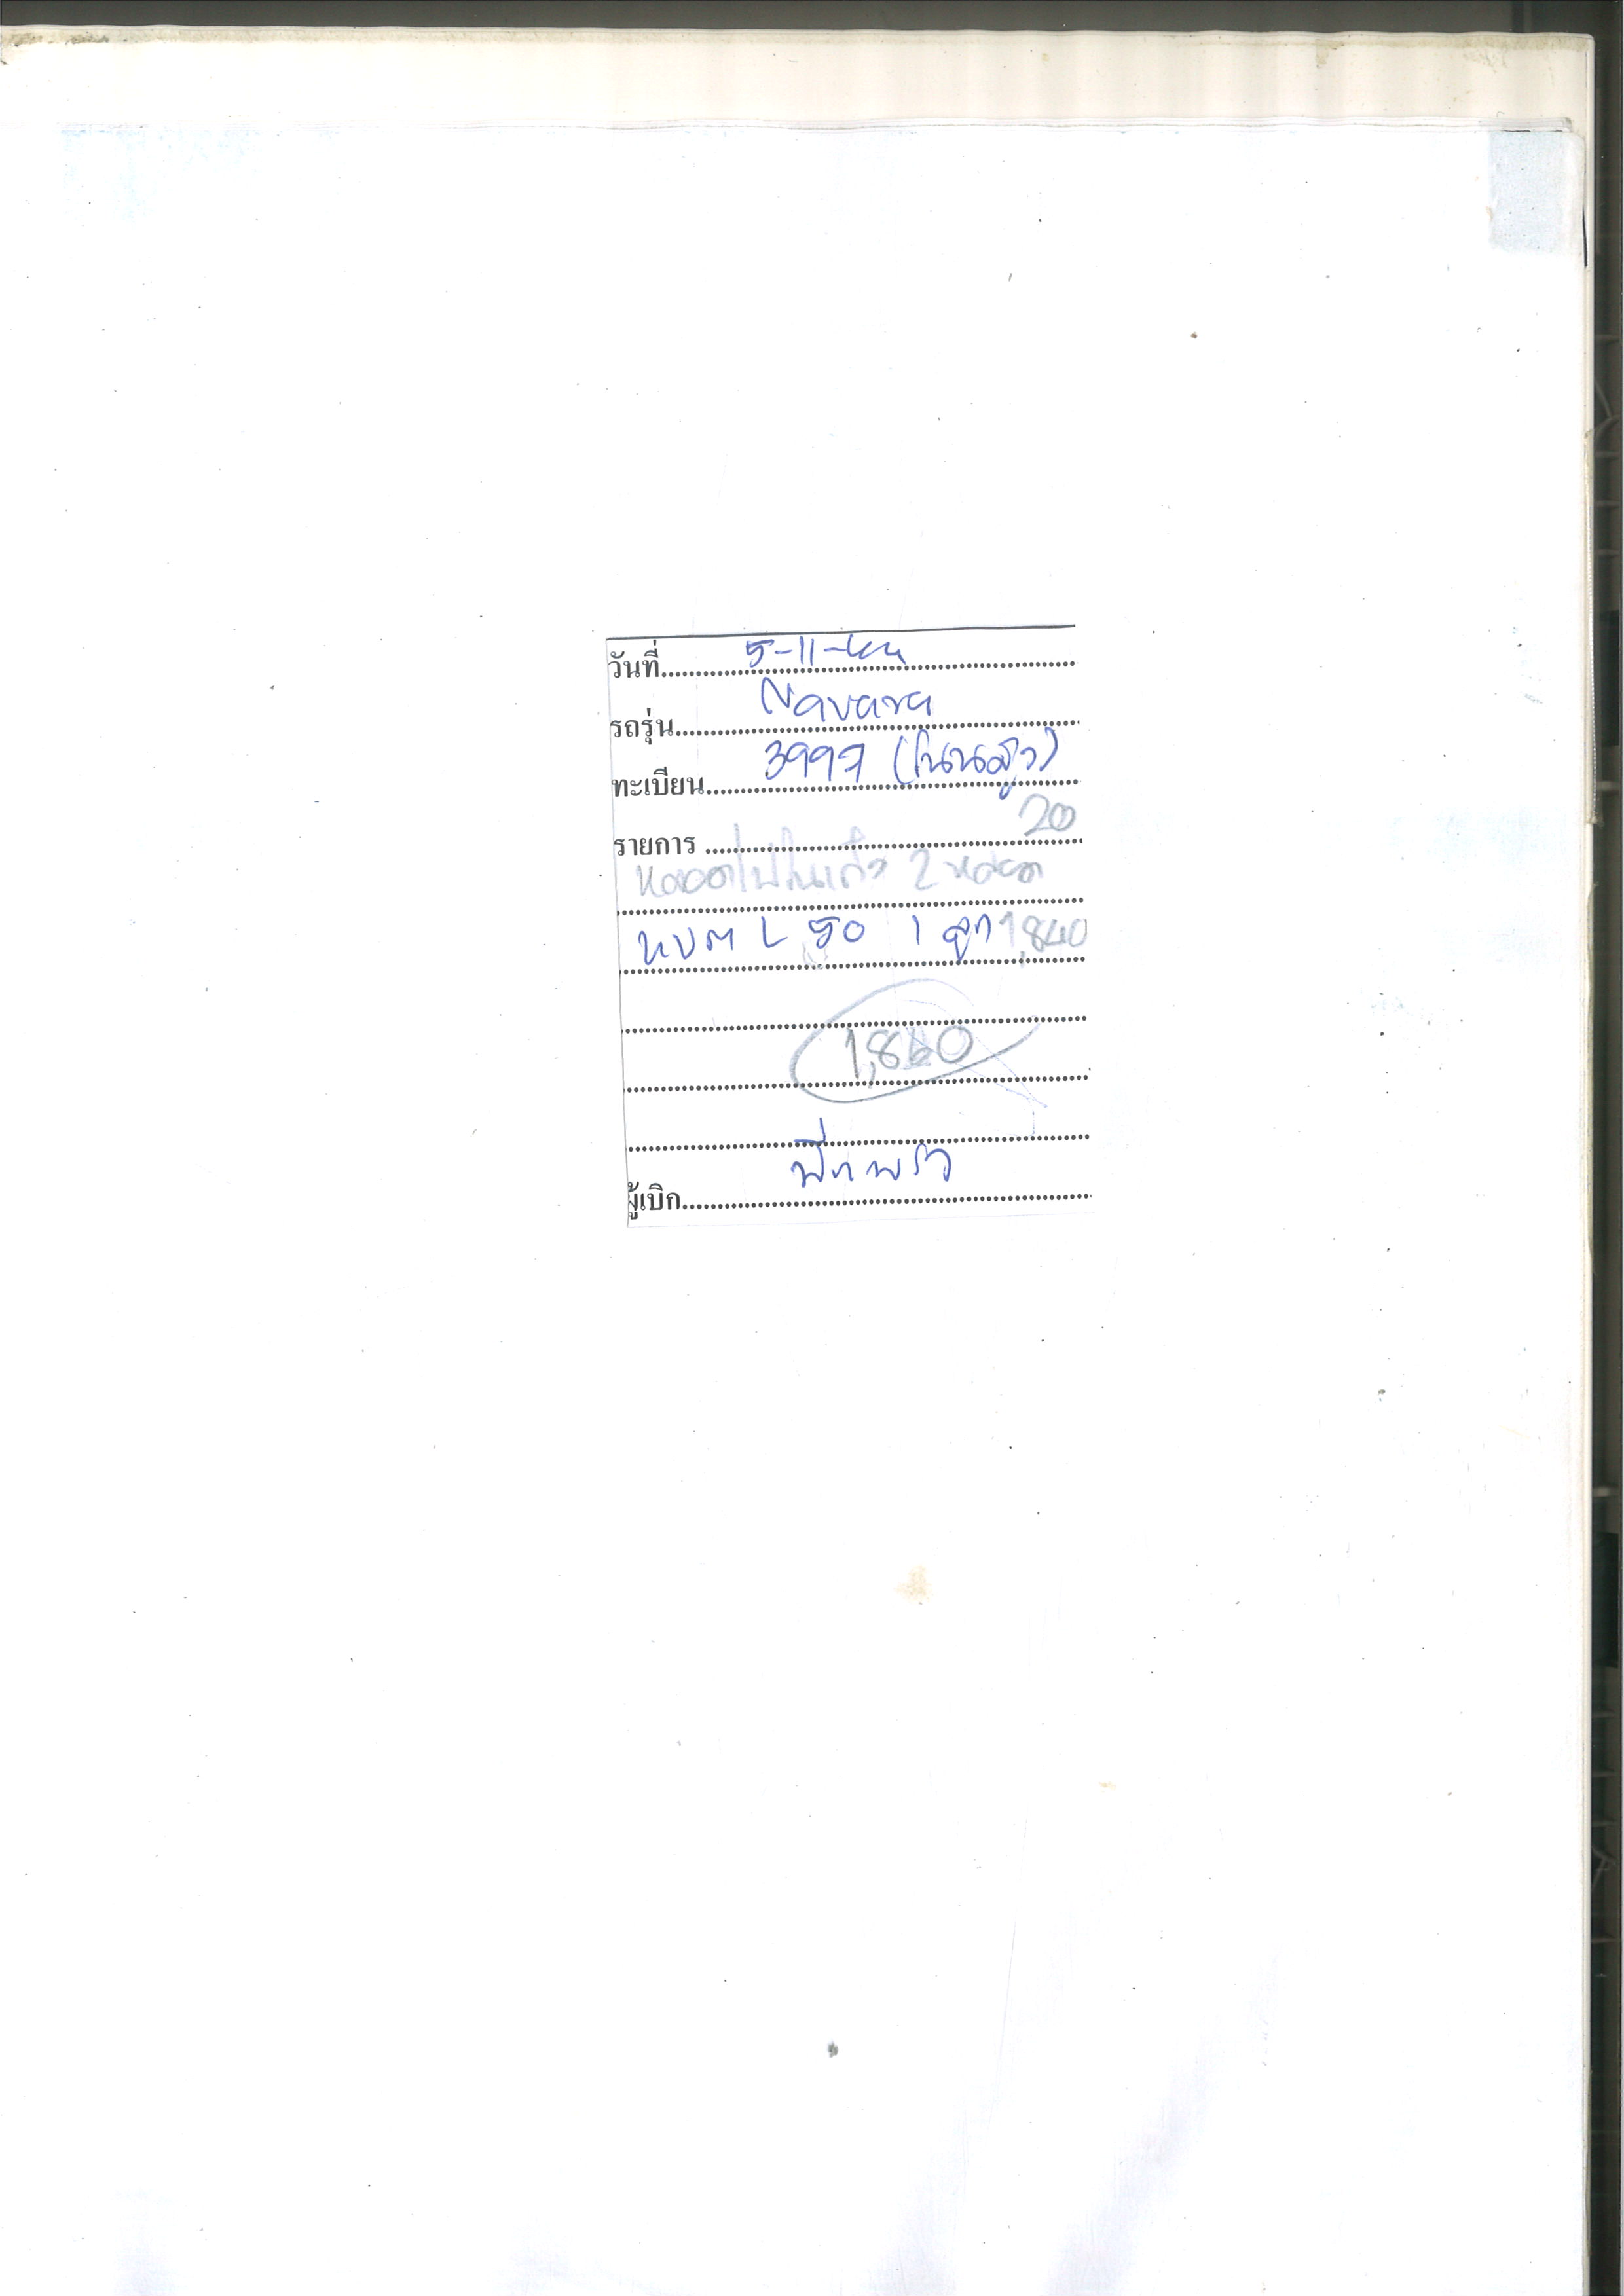 วันที่ 5-11-
รถรุ่น Navara
ทะเบียน 3997 (โนนสูง)
รายการ 20
หลอดไฟในเก๋ง 2 หลอด
หบต L 50 1 ลูก 1,840
1,860
ผู้เบิก